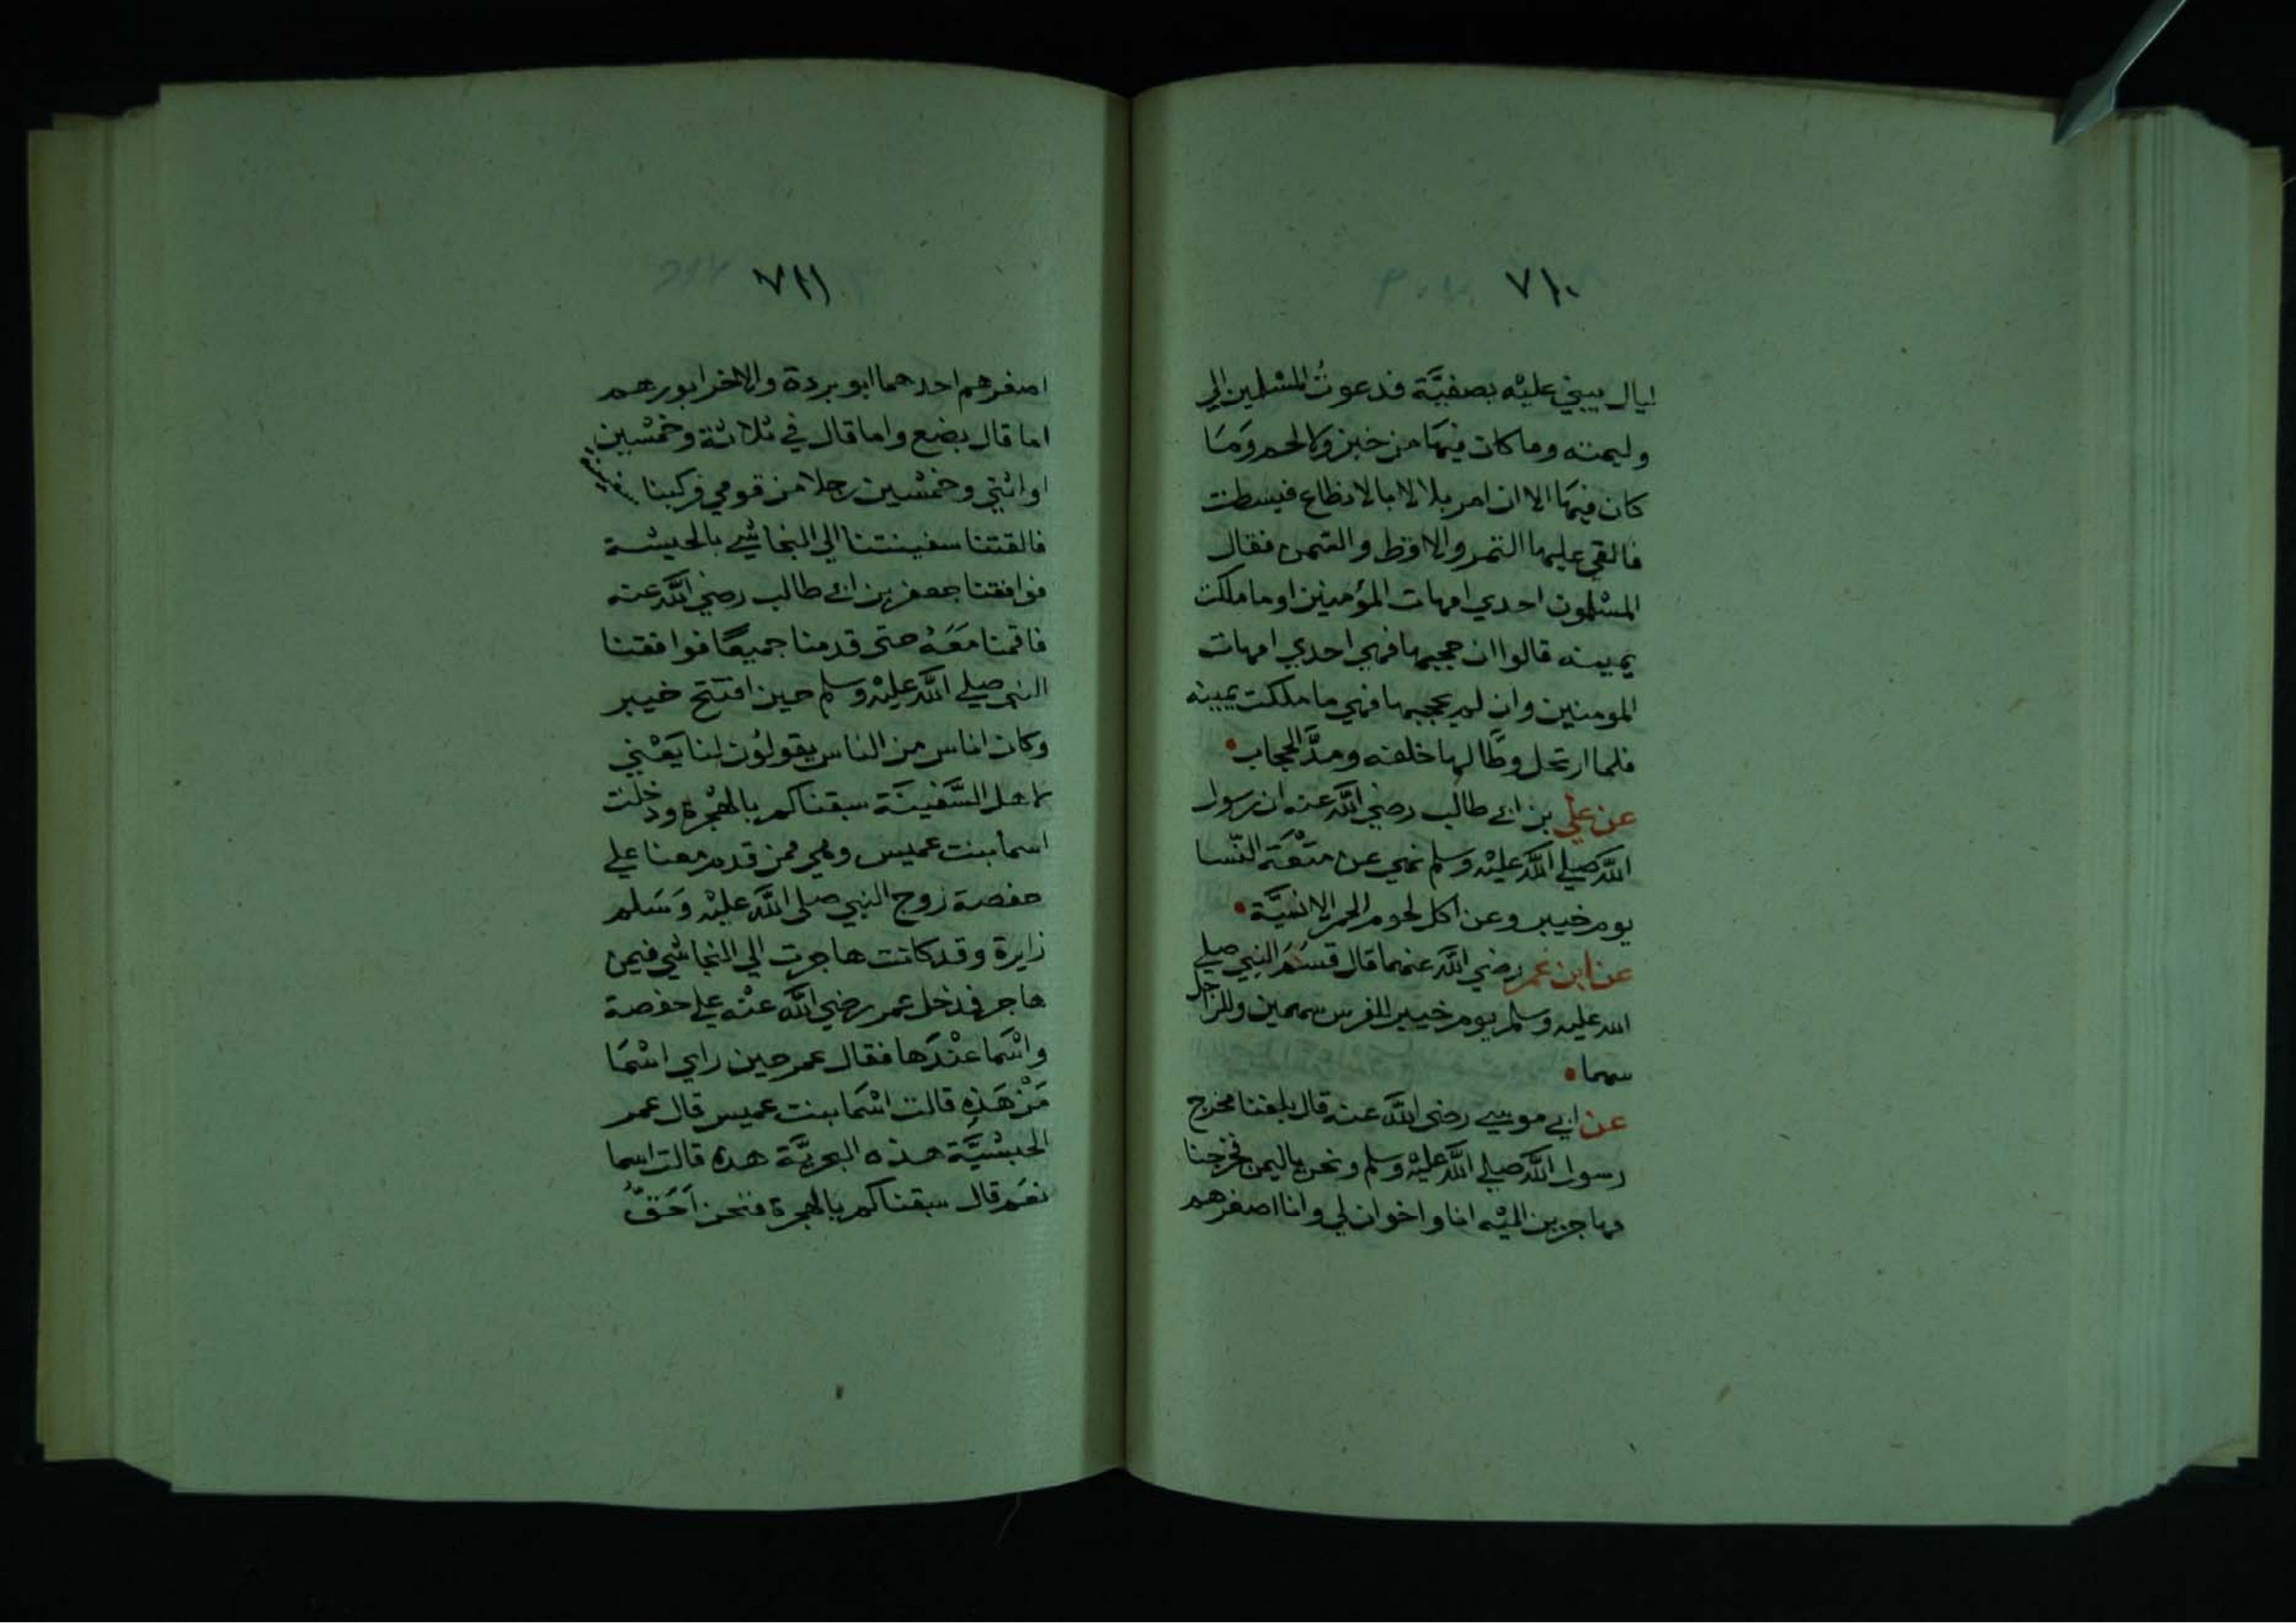 ٧١٠
ليال يبني عليْه بصفيَّة فدعوتُ المسْلمين الي
وليمته وما كان فيهَا من خبز ولا لحم وَمَا
كان فيهَا الا ان امر بلالا بالانطاع فبسطت
فالقي عليها التمر والاقط والسمن فقال
المسْلمون احدي امهات المؤمنين او ما ملكت
يمينه قالوا ان حجبها فهي احدي امهات
المومنين وان لم يحجبها فهي ما ملكت يمينه
فلما ارتحل وطَّا لها خلفه ومدَّ الحجاب
عن علي بن ابي طالب رضي اللَّه عنه ان رسول
اللَّه صلي اللَّه عليْه وسلم نهي عن متْعَة النّسا
يوم خيبر وعن اكل لحوم الحمر الانسيَّة
عن ابن عمر رضي اللَّه عنهما قال قسَمَ النبي صلي
الله عليه وسلم يوم خيبر للفرس سهمين وللراجل
سهما
عن ابي موسي رضي اللَّه عنه قال بلغنا مخرج
رسول اللَّه صلي اللَّه عليْه وسلم ونحن باليمن فخرجنا
مهاجرين اليْه انا واخوان لي وانا اصغرهم
٧١١
اصغرهم احدهما ابو بردة والاخر ابو رهم
اما قال بضع واما قال في ثلاثة وخمْسين
او اثني وخمْسين رجلا من قومي فركبنا سفينة
فالقتنا سفينتنا الي النجاشي بالحبشة
فوافقنا جعفر بن ابي طالب رضي اللَّه عنه
فاقمنا مَعَهُ حتى قدمنا جميعًا فوافقنا
النبي صلي اللَّه عليْه وسلم حين افتتح خيبر
وكان اناس من الناس يقولوُن لنا يَعْني
لاهل السَّفينَة سبقناكم بالهْجرة ودخلت
اسما بنت عميس وهي ممن قدم معنا علي
حفصة زوج النبي صلى اللَّه عليْه وَسَلم
زايرة وقد كانت هاجرت الي النجاشي فيمن
هاجر فدخل عمر رضي اللَّه عنْه علي حفصة
واسْما عنْدَها فقال عمر حين راي اسْمَا
مَنْ هَذِه قالت اسْمَا بنت عميس قال عمر
الحبشيَّة هذه البحريَّة هذه قالت اسما
نعَم قال سبقناكم بالهجرة فنحن اَحَقُّ